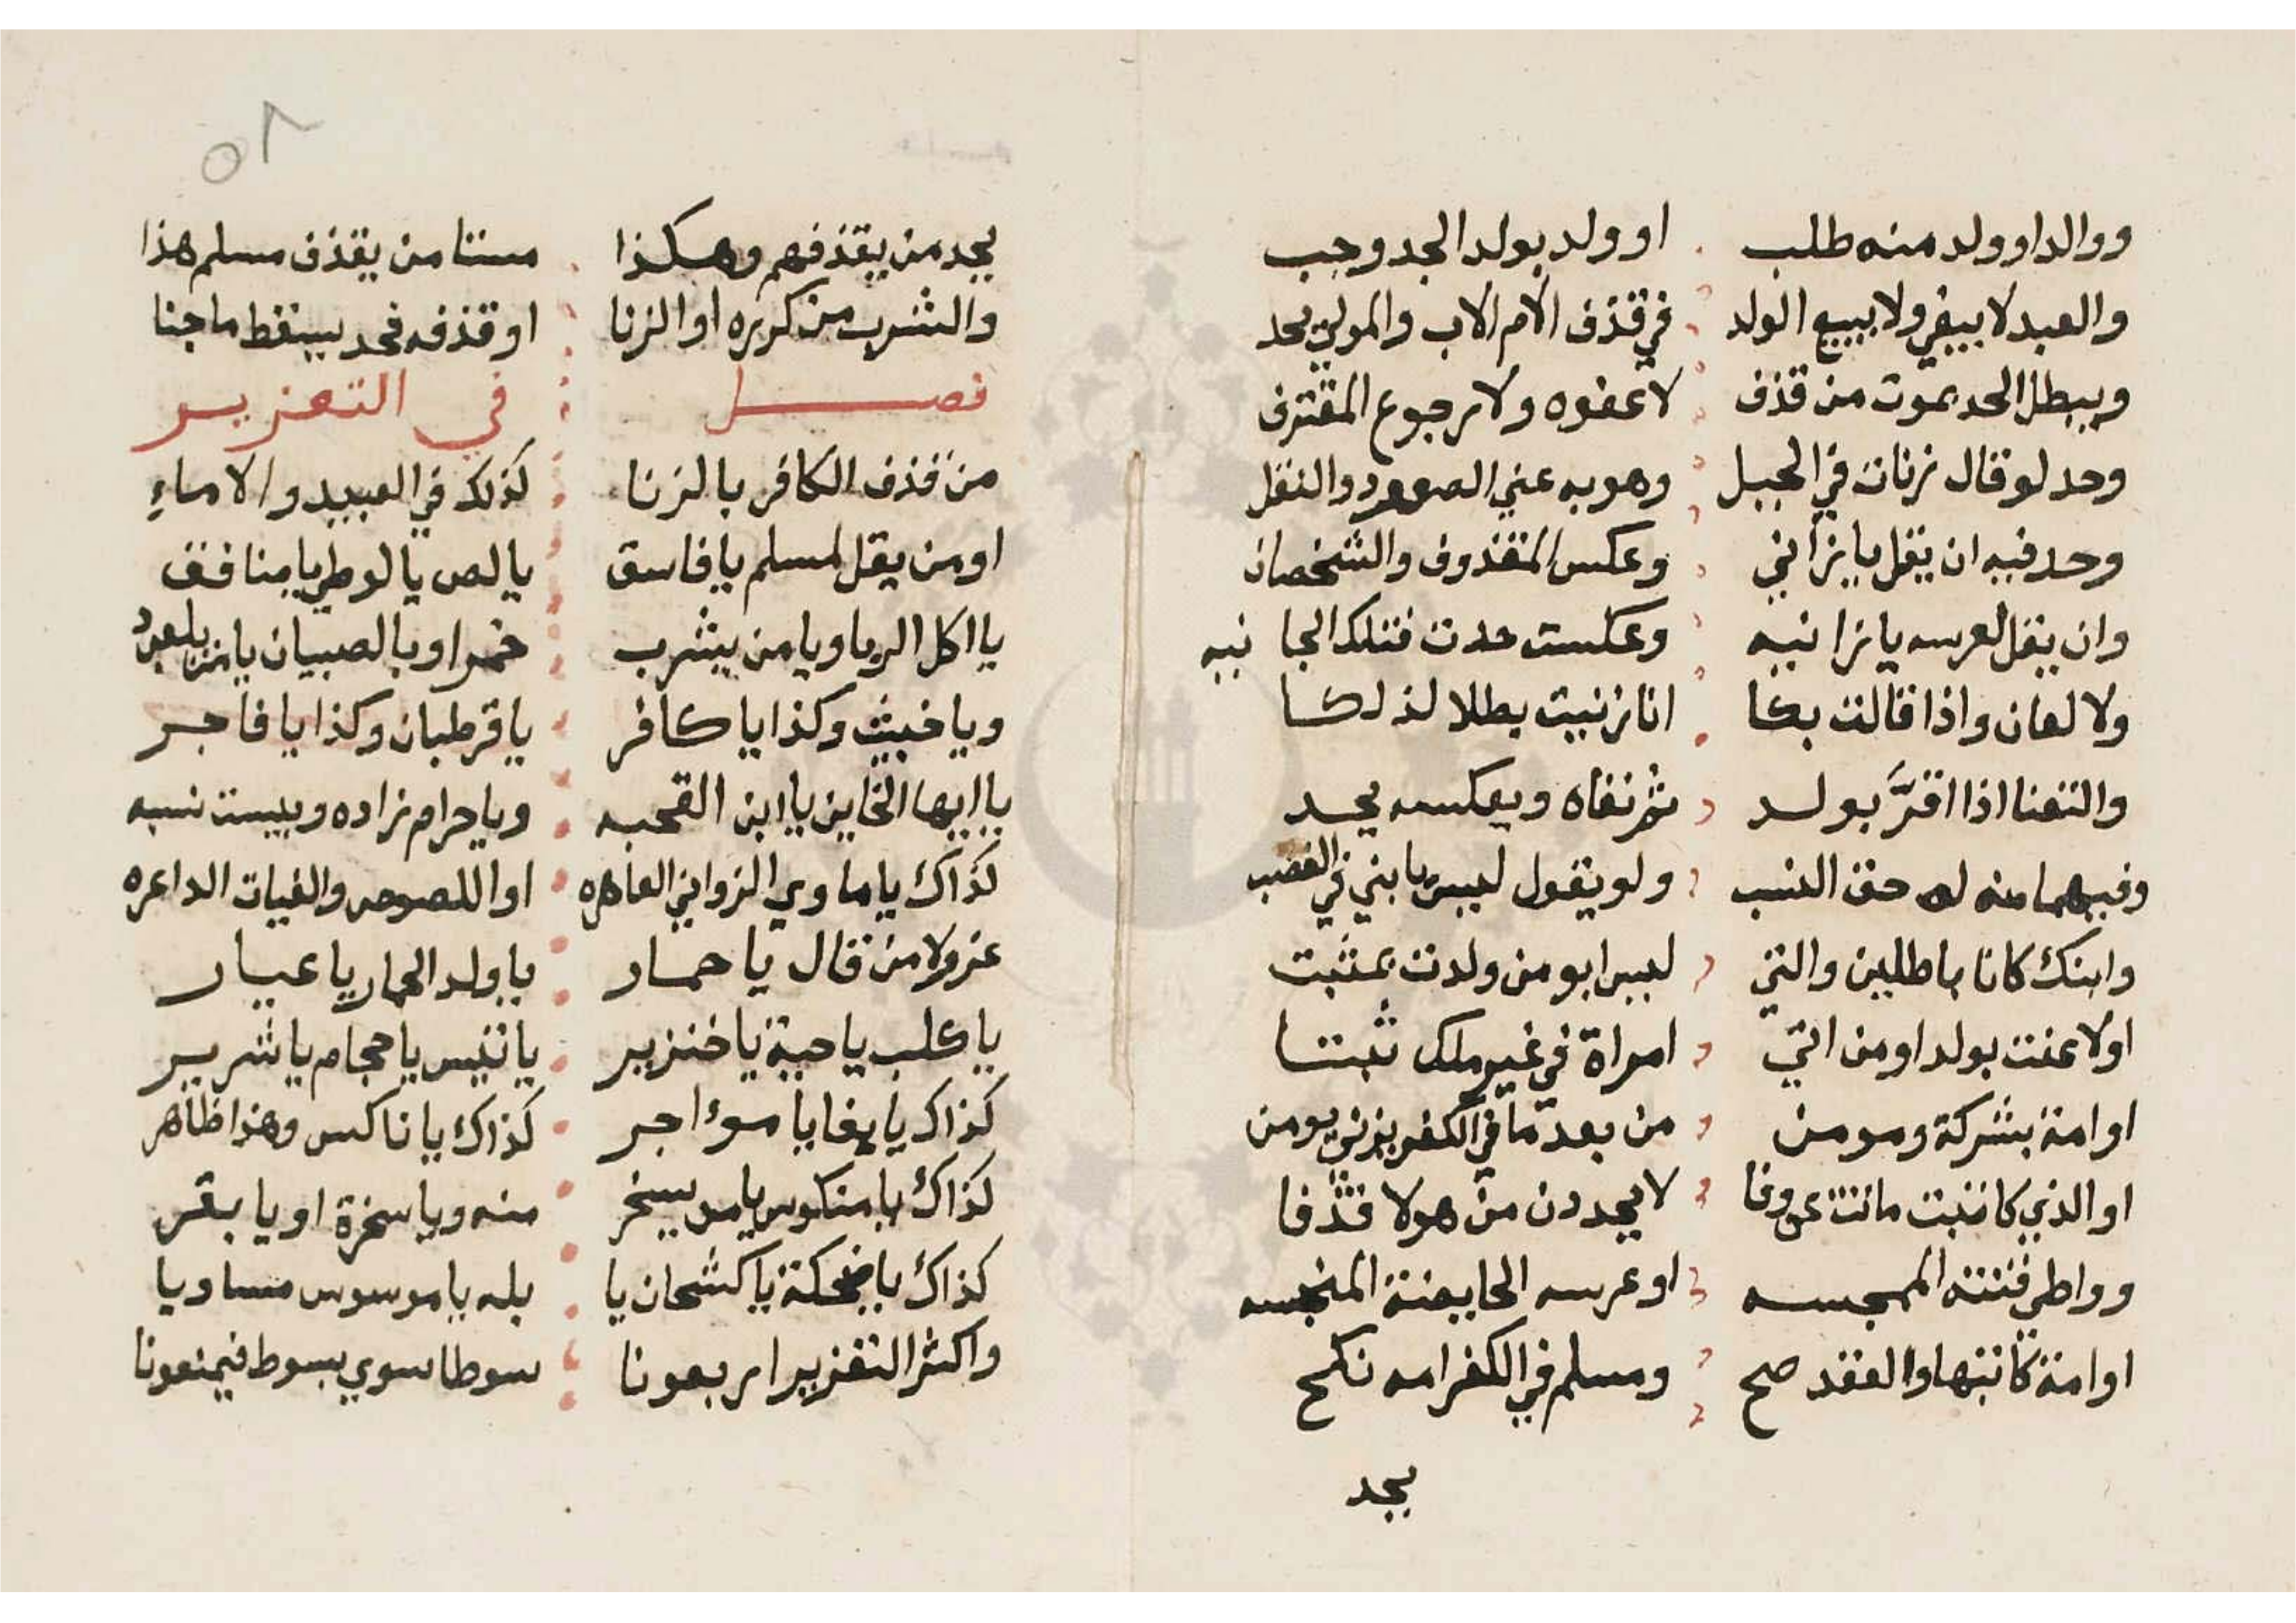 ووالد او ولد منه طلب او ولد بولد الجد وجب
والعبد لا يبقي ولا يبيع الولد في قذف الام الاب والمولي يحد
ويبطل الحد بموت من قذف لا عفوه ولا رجوع المقترف
وحد لو قال زنات في الجبل وهو به عني الصعود والنقل
وحد فيه ان يقل يا زاني وعكس المقذوف والشخصان
وان يقل لعرسه يا زانيه وعكست حدت فتلك الجا نيه
ولا لعان واذا قالت بكا انا زنيت بطلا لذلكا
والتعنا اذا اقرَّ بولد ثم نفاه وبعكسه يحد
وفيهما منه له حق النسب ولو يقول ليس يا بني في الغضب
وابنك كانا باطلين والتي ليس ابو من ولدت بمثبت
اولاعنت بولد او من اتي امراة في غير ملك ثبتا
او امة بشركة ومومن من بعد ما في الكفر يزني يومن
او الذي كاتبت مات عن وفا لا يحددن من هولا قذفا
وواطي فتنته الممجسه او عرسه الحايضة المنجسه
او امة كاتبها والعقد صح ومسلم في الكفر امه نكح
يحد
٥٨
يحد من يقذفهم وهكذا مستامن يقذف مسلم هذا
والشرب من كرره او الزنا او قذفه فحد يسقط ما جنا
فصل في التعزير
من قذف الكافر بالزنا كذلك في العبيد والاماءِ
او من يقل لمسلم يا فاسق يا لص يا لوطي يا منافق
يا اكل الربا ويا من يشرب خمرا وبالصبيان يا من يلعب
ويا خبيث وكذا يا كافر يا قرطبان وكذا يا فاجر
يا ايها الخاين يا ابن القحبه ويا حرام زاده وبيست نسبه
كذاك يا ماوي الزواني العاهره او اللصوص والفيات الداعره
عزر ولا من قال يا حمار يا ولد الحمار يا عيار
يا كلب يا حية يا خنزير يا تيس يا حجام يا شرير
كذاك يا بغا يا موءاجر كذاك يا ناكس وهذا ظاهر
كذاك يا منكوس يا من يسخر منه ويا سخرة او يا بقر
كذاك يا ضحكة يا كشحان يا بله يا موسوس مساويا
واكثر التعزير اربعونا سوطا سوي بسوط فيمنعونا